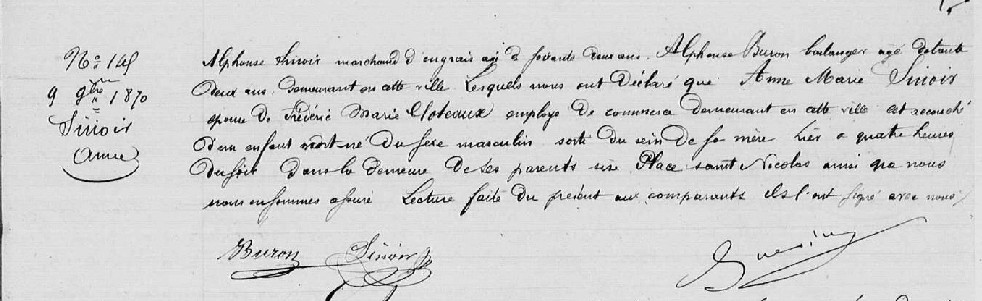 No 149
9 9bre 1870
Sinoir
Anne
Alphonse Sinoir marchand d'engrais agé de soixante deux ans. Alphonse Buron boulanger agé de
deux ans. Demeurant en cette ville Lesquels nous ont déclaré que Anne Marie Sinoir
épouse de Frédéric Marie Cloteaux employé de commerce demeurant en cette ville est accouché
d'un enfant mort-né du sexe masculin sorti du sein de sa mère hier a quatre heures
du soir dans la demeure de ses parents sise Place saint Nicolas ainsi que nous
nous en sommes assuré Lecture faite du présent aux comparants ils l'ont signé avec nous
Buron Sinoir